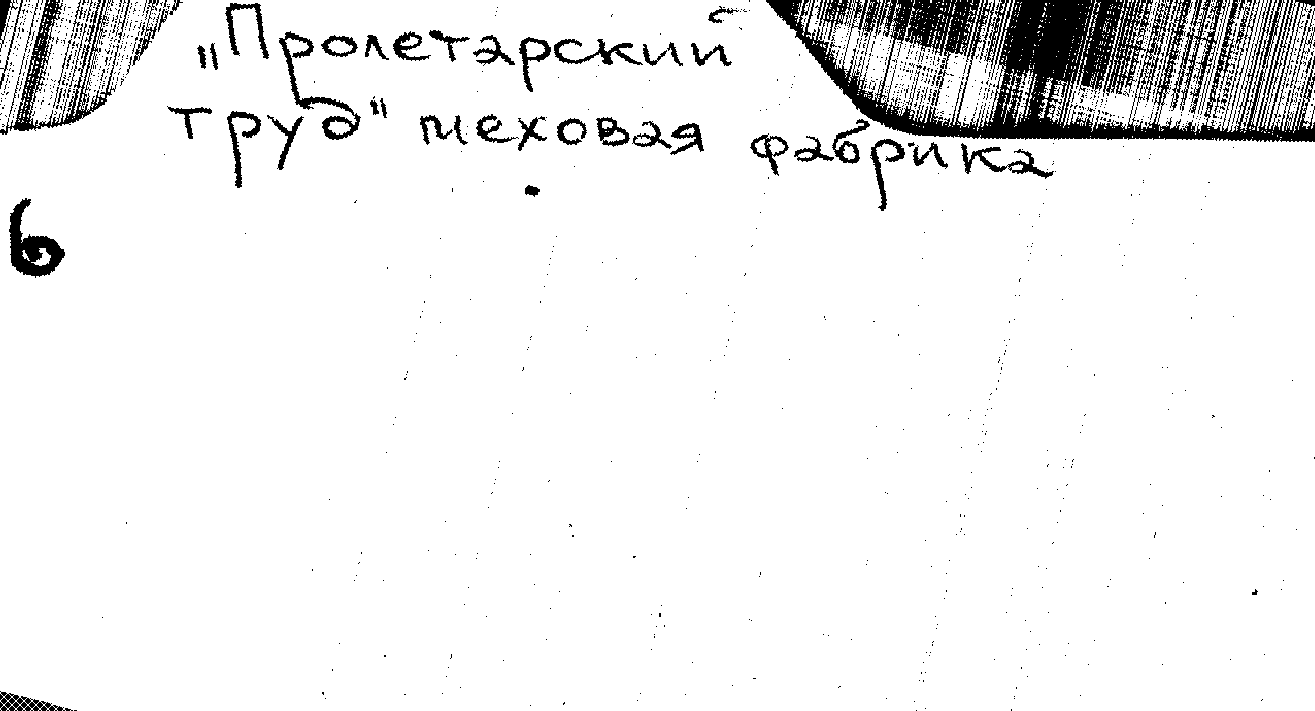 "Пролетарский
труд" меховая фабрика
6